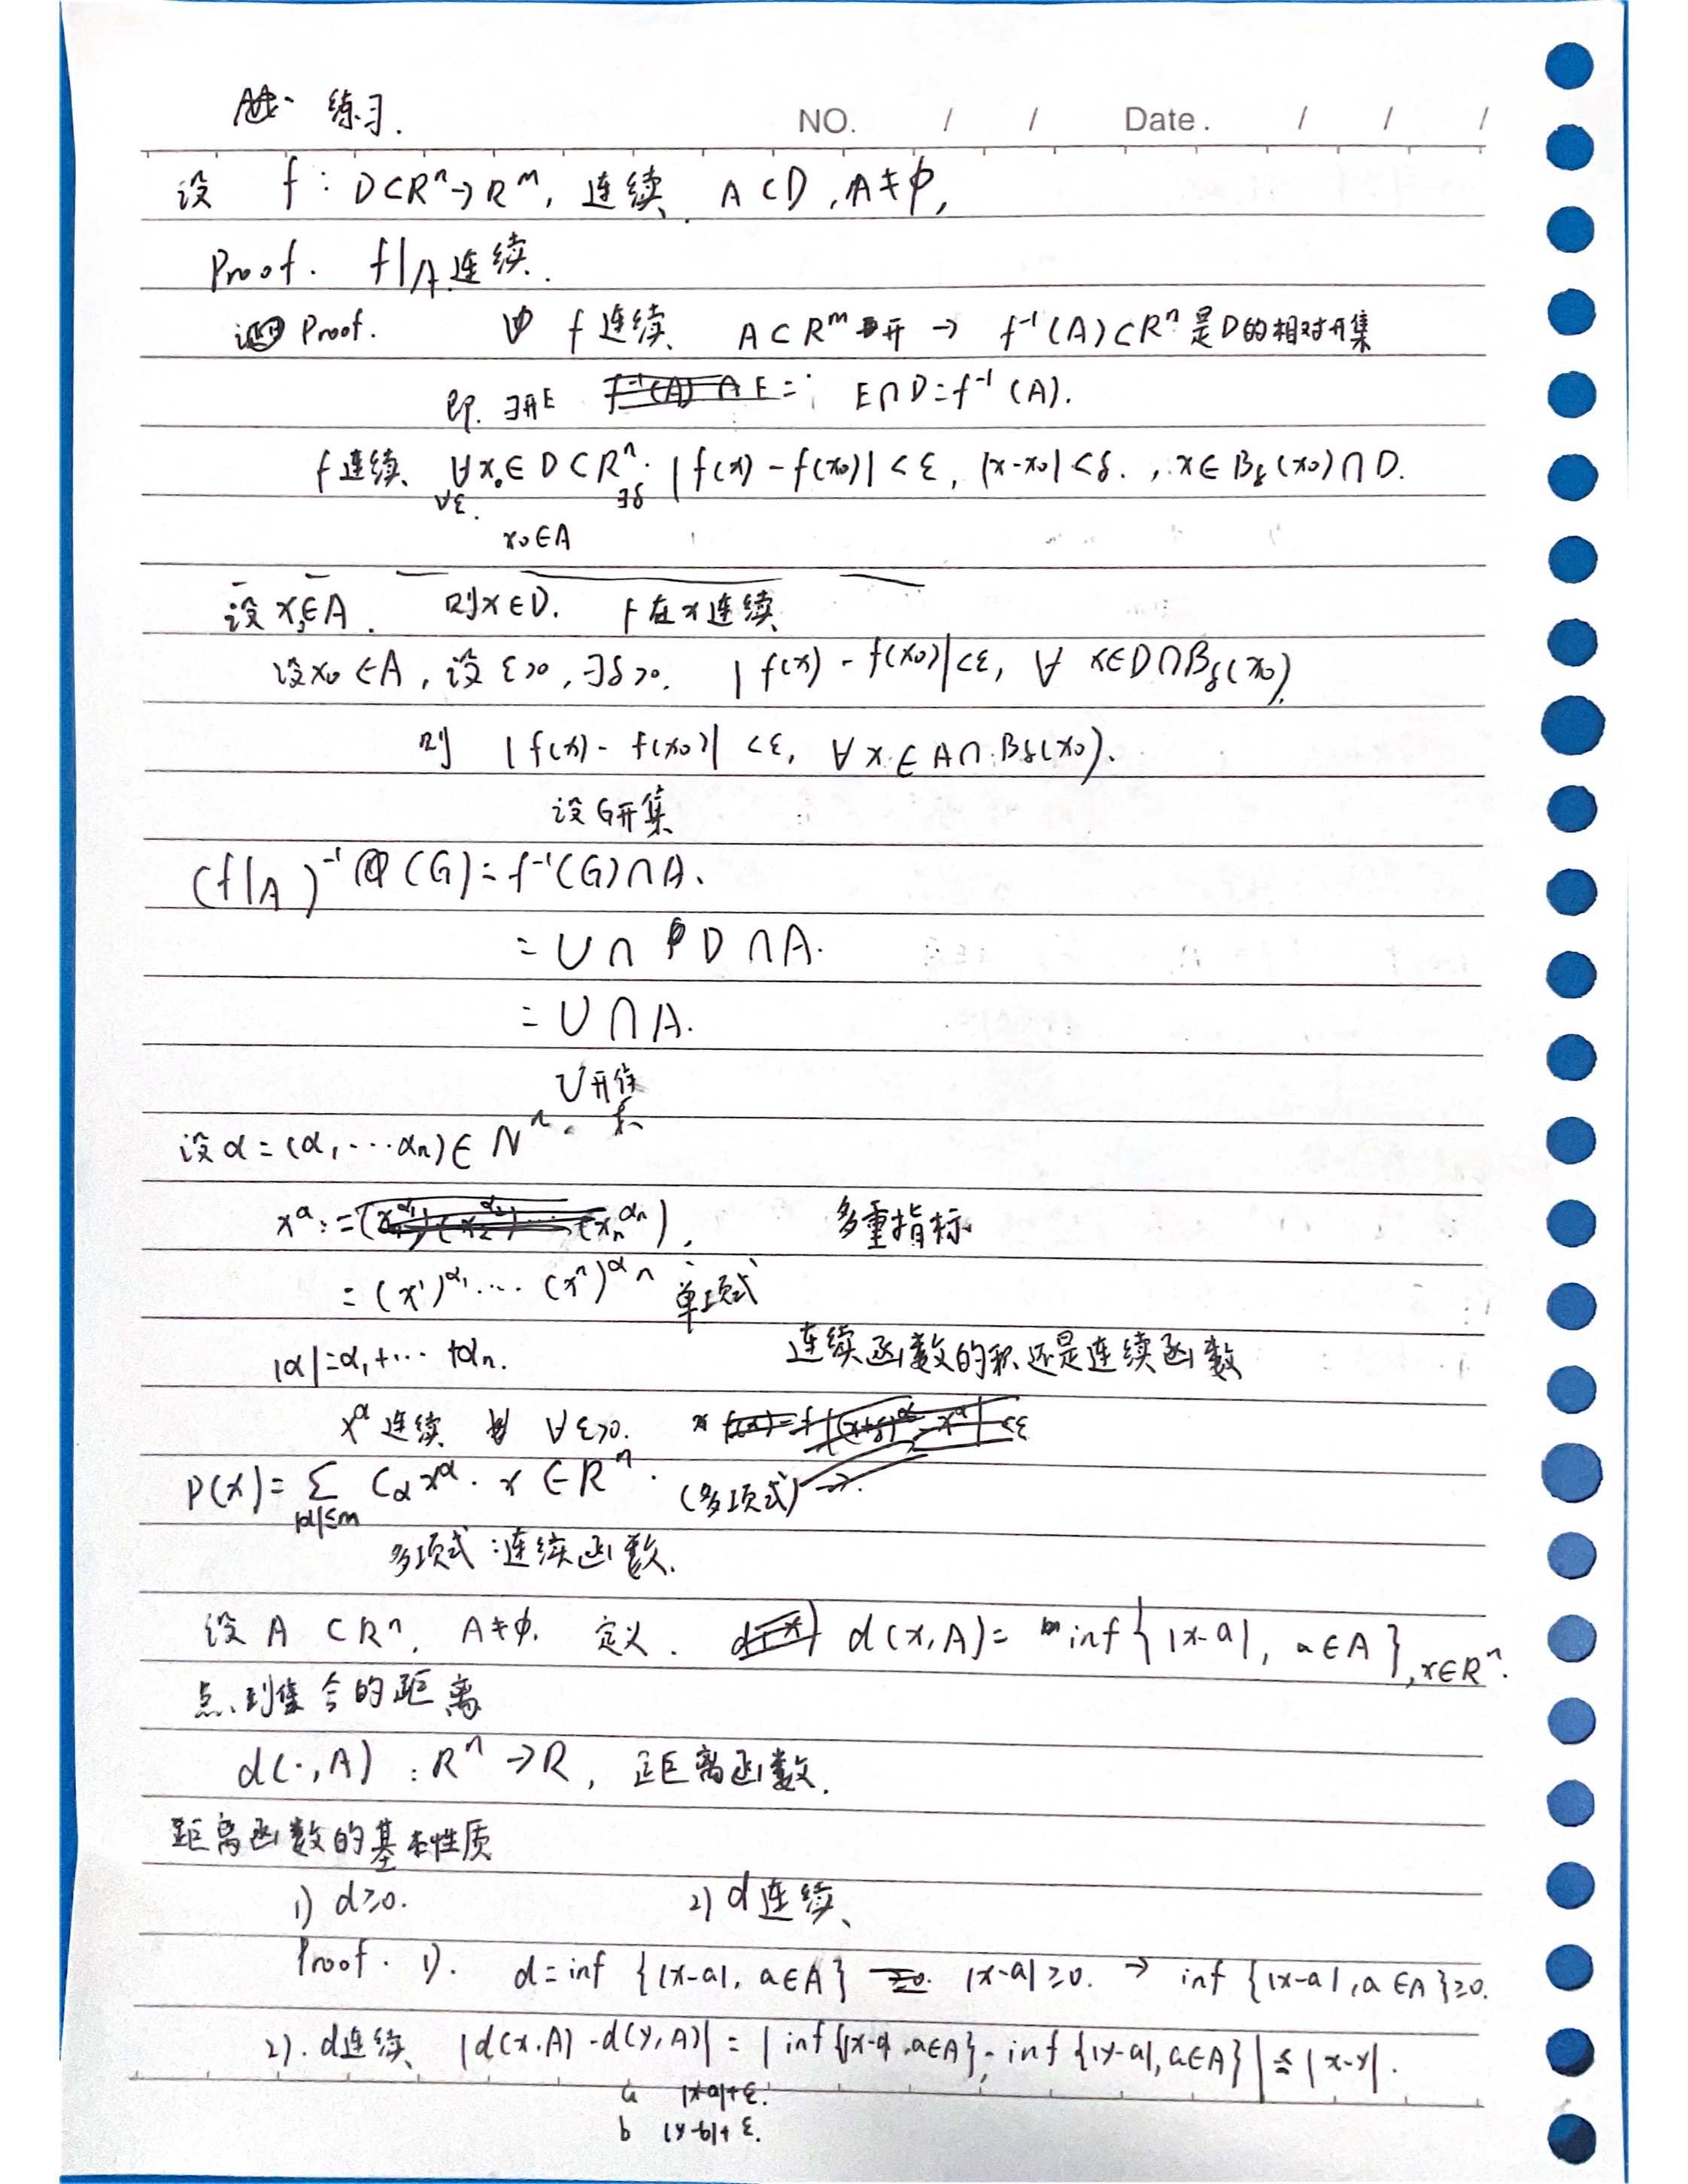 练习.
NO. / / Date. / / /
设 f : D⊂Rⁿ→Rᵐ, 连续. A⊂D, A≠∅,
Proof. f|_A 连续.
Proof. f 连续 A⊂Rᵐ 开 → f⁻¹(A)⊂Rⁿ 是D的相对开集
即. ∃开E E∩D=f⁻¹(A).
f连续 ∀x₀∈D⊂Rⁿ. |f(x)-f(x₀)|<ε, |x-x₀|<δ. , x∈B_δ(x₀)∩D.
∀ε. ∃δ
x₀∈A
设x∈A. 则x∈D. f在x连续
设x₀∈A, 设ε>0, ∃δ>0. |f(x)-f(x₀)|<ε, ∀ x∈D∩B_δ(x₀)
则 |f(x)-f(x₀)|<ε, ∀x∈A∩B_δ(x₀).
设G开集
(f|_A)⁻¹(G)=f⁻¹(G)∩A.
= U∩D∩A.
= U∩A.
U开集
设α=(α₁,…αₙ)∈Nⁿ.
x^α:= 多重指标
=(x¹)^α₁…(xⁿ)^αₙ 单项式
|α|=α₁+…+αₙ. 连续函数的积还是连续函数
x^α连续 ∀ε>0.
P(x)=∑ C_α x^α. x∈Rⁿ. (多项式)
|α|≤m
多项式:连续函数.
设A⊂Rⁿ, A≠∅. 定义. d(x,A)= inf{|x-a|, a∈A}, x∈Rⁿ.
点到集合的距离
d(·,A) : Rⁿ→R, 距离函数.
距离函数的基本性质
1) d≥0. 2) d连续
Proof. 1). d=inf{|x-a|, a∈A} |x-a|≥0. → inf{|x-a|, a∈A}≥0.
2). d连续 |d(x,A)-d(y,A)|=|inf{|x-a|,a∈A}-inf{|y-a|,a∈A}|≤|x-y|.
a |x-a|+ε.
b |y-b|+ε.